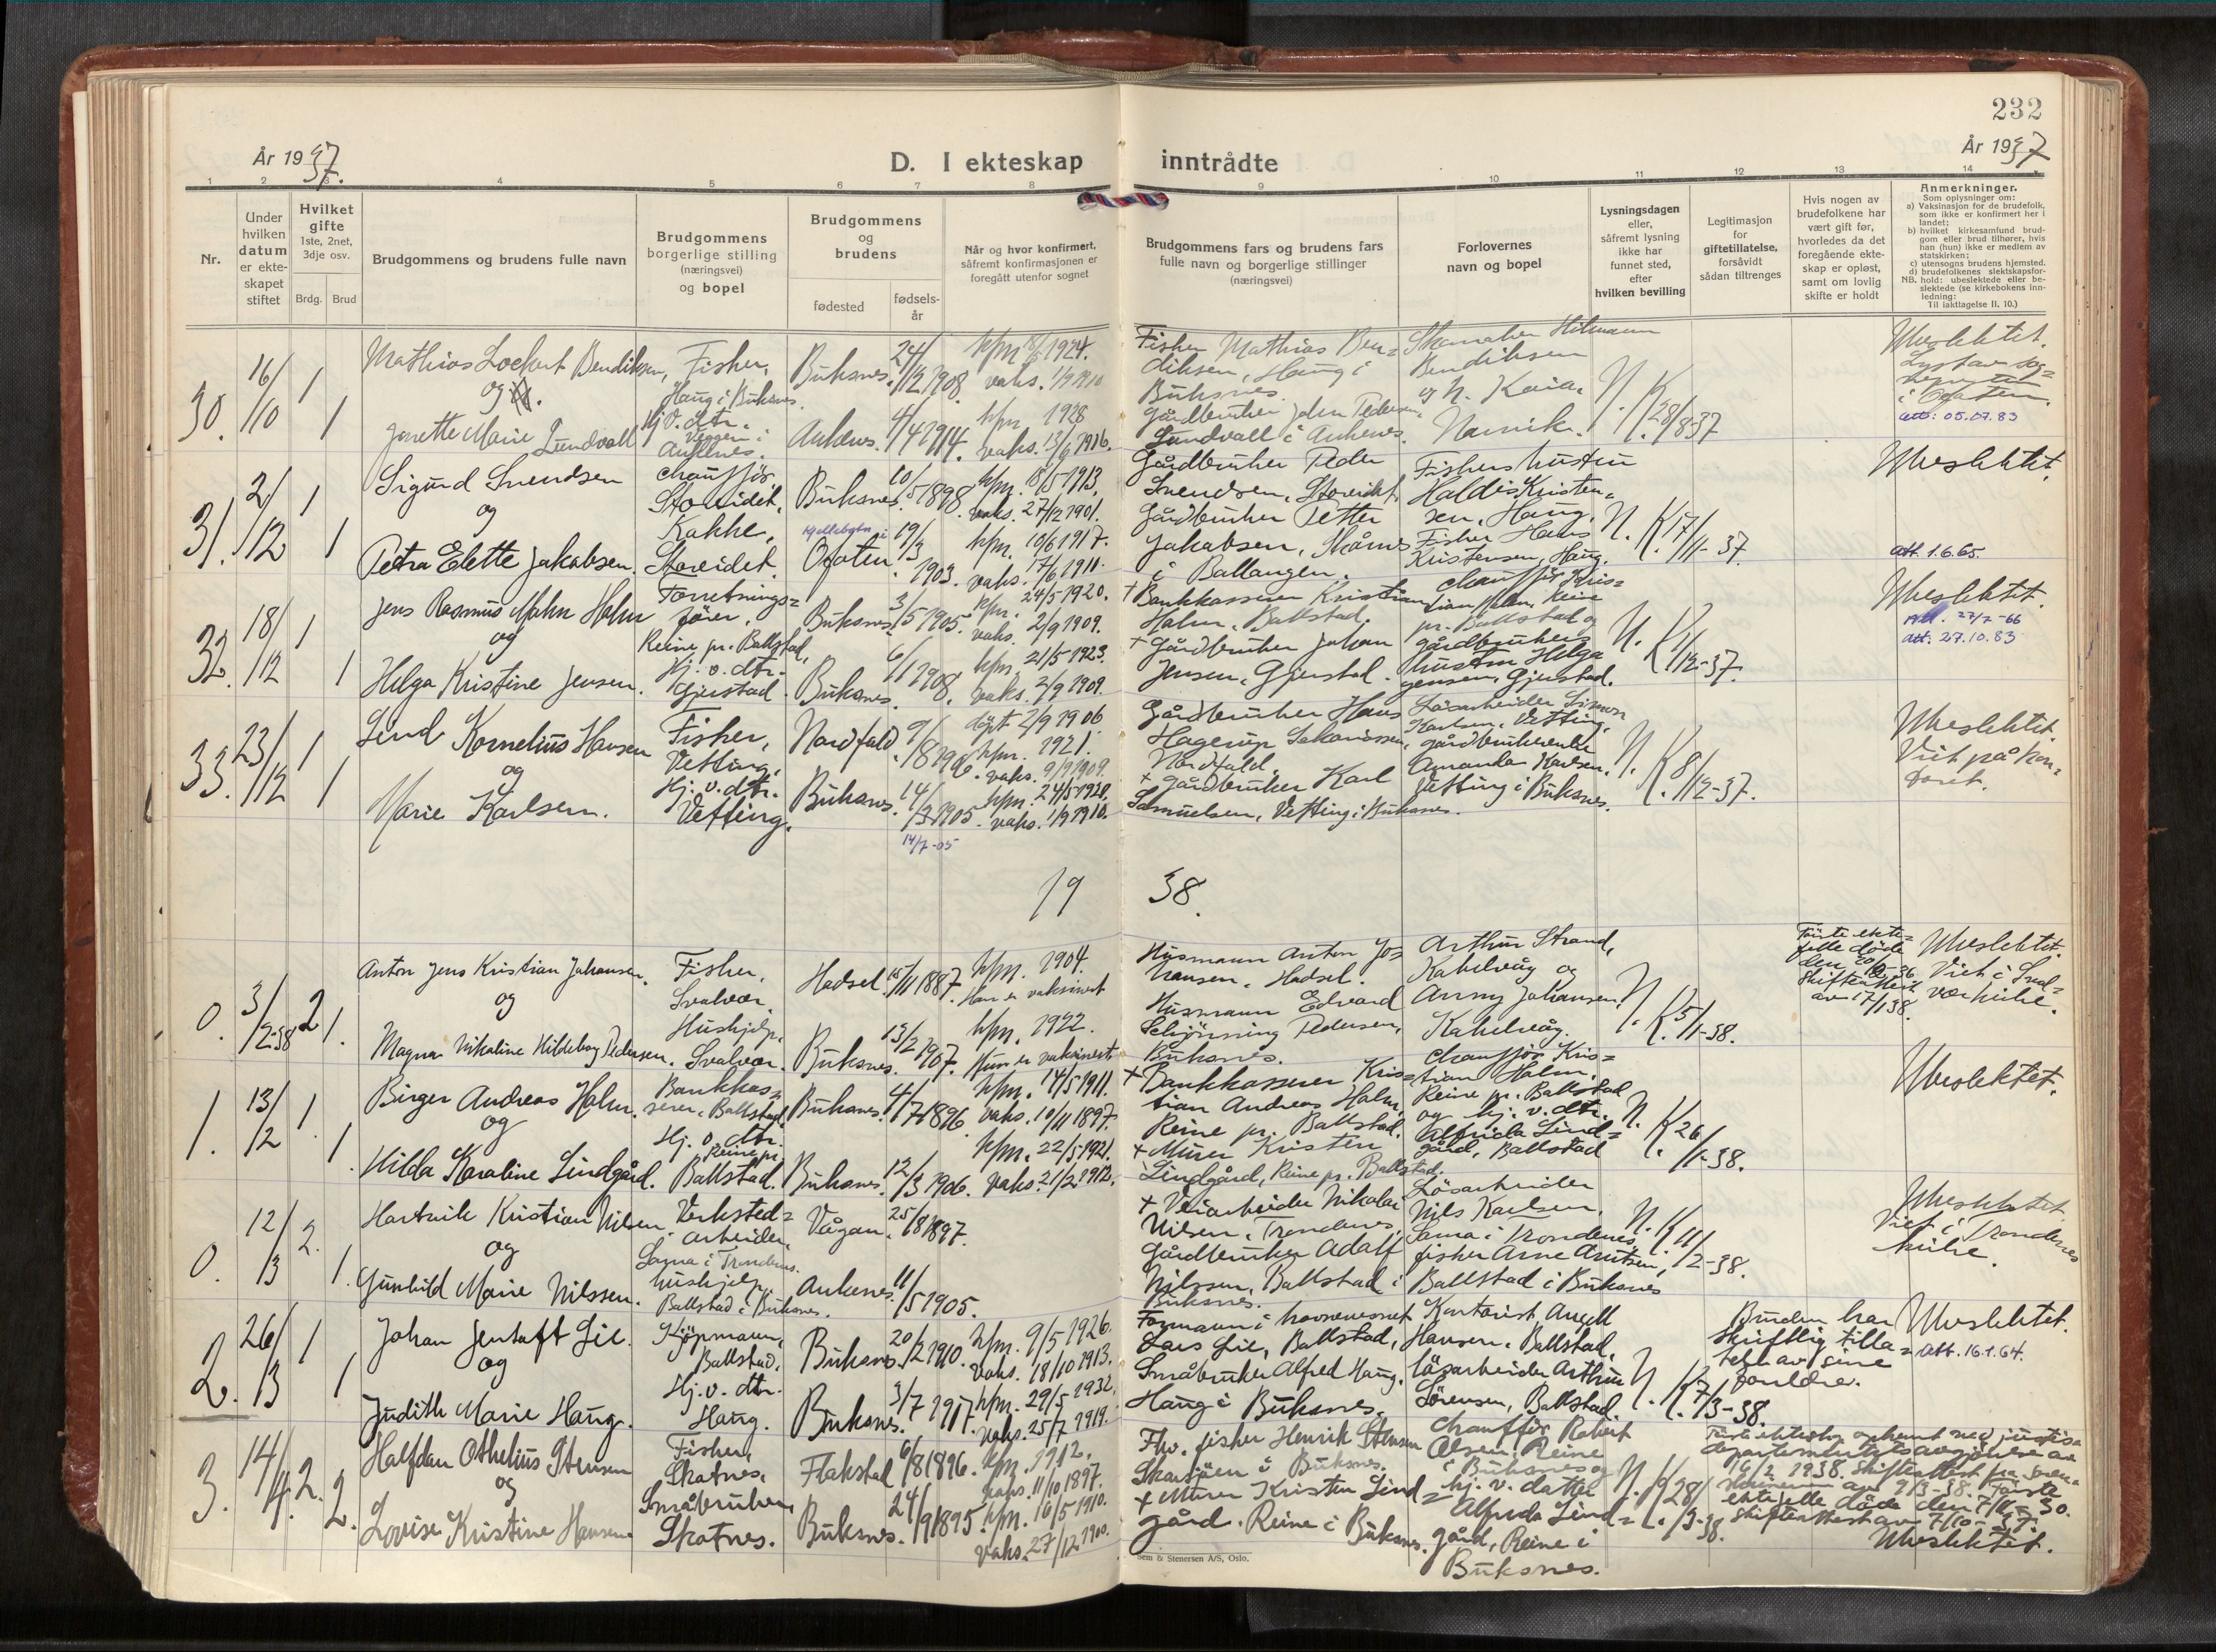 232
År 1937.
D. I ekteskap inntrådte
År 1937
1 2 3 4 5 6 7 8 9 10 11 12 13 14
Nr.
Under hvilken datum er ekte-skapet stiftet
Hvilket gifte
1ste, 2net, 3dje osv.
Brdg. Brud
Brudgommens og brudens fulle navn
Brudgommens borgerlige stilling (næringsvei) og bopel
Brudgommens og brudens
fødested
fødsels-år
Når og hvor konfirmert, såfremt konfirmasjonen er foregått utenfor sognet
Brudgommens fars og brudens fars fulle navn og borgerlige stillinger (næringsvei)
Forlovernes navn og bopel
Lysningsdagen eller, såfremt lysning ikke har funnet sted, efter hvilken bevilling
Legitimasjon for giftetillatelse, forsåvidt sådan tiltrenges
Hvis nogen av brudefolkene har vært gift før, hvorledes da det foregående ekte-skap er opløst, samt om lovlig skifte er holdt
Anmerkninger.
Som oplysninger om:
a) Vaksinasjon for de brudefolk, som ikke er konfirmert her i landet;
b) hvilket kirkesamfund brud-gom eller brud tilhører, hvis han (hun) ikke er medlem av statskirken;
c) utensogns brudens hjemsted.
d) brudefolkenes slektskapsfor-hold: ubeslektede eller be-slektede (se kirkebokens inn-ledning:
NB.
Til iakttagelse II. 10.)
30. 16/10 1 1
Mathias Lockert Bendiksen,
og
Jonette Marie Lundvall
Fisher,
Haug i Buksnes.
Hj. v. dtr.
Ankenes.
Buksnes. 24/12 1908.
Ankenes. 4/4 1914.
kfn. 18/5 1924.
vaks. 1/9 1910
kfn. 1928
vaks. 13/6 1916.
Fisher Mathias Ben=
diksen, Haug i
Buksnes.
Gårdbruker John Pedersen
Lundvall i Ankenes.
Hilmann
Bendiksen
og N. Kaia,
Narvik.
N. K. 28/8-37
Ubeslektet.
att: 05.07.83
31. 2/12 1 1
Sigurd Svendsen
og
Petra Elette Jakobsen.
Chaufför,
Storeidet.
Kokke,
Storeidet.
Buksnes. 10/5 1898.
Ofoten. 19/3 1903.
kfn. 18/5 1913,
vaks. 27/12 1901.
kfn. 10/6 1917.
vaks. 17/6 1911.
Gårdbruker Peder
Svendsen, Storeidet
Gårdbruker Petter
Jakobsen, Skårnes
i Ballangen.
Fishers hustru
Haldis Kristen=
sen, Haug,
Fisher Hans
Kristensen, Haug.
N. K. 17/11-37.
Ubeslektet.
att. 1.6.65.
32. 18/12 1 1
Jens Rasmus Mahn Holm
og
Helga Kristine Jensen.
Forretnings=
förer,
Reine pr. Ballstad,
Hj. v. dtr.
Gjerstad.
Buksnes. 3/5 1905.
Buksnes. 6/1 1908.
kfn. 24/5 1920.
vaks. 2/9 1909.
kfn. 21/5 1923.
vaks. 2/9 1909.
+ Bankkasserer Kristian
Holm, Ballstad.
+ Gårdbruker Johan
Jensen, Gjerstad.
Chaufför Kris=
tian Holm, Reine
pr. Ballstad og
gårdbruker=
hustru Helga
Jensen, Gjerstad.
N. K. 1/12-37.
Ubeslektet.
27/7-66
att: 27.10.83
33. 23/12 1 1
Lind Kornelius Hansen
og
Marie Karlsen.
Fisher,
Vetting.
Hj. v. dtr.
Vetting.
Nordfold. 9/8 1906.
Buksnes. 14/3 1905.
14/7-05
döpt 2/9 1906
kfn. 1921.
vaks. 9/9 1909.
kfn. 24/5 1920,
vaks. 1/9 1910.
Gårdbruker Hans
Hagerup Sakariassen,
Nordfold.
+ Gårdbruker Karl
Samuelsen, Vetting i Buksnes.
Lösarbeider Simon
Karlsen, Vetting,
gårdbrukerenke
Amanda Karlsen,
Vetting i Buksnes.
N. K. 8/12-37.
Ubeslektet.
Viet på kon=
toret.
1938.
0. 3/2-38 2 1.
Anton Jens Kristian Johansen.
og
Magna Nikoline Hildeborg Pedersen.
Fisher,
Svolvær.
Hushjelp,
Svolvær.
Hadsel. 15/11 1887.
Buksnes. 13/2 1907.
kfn. 1904.
Han er vaksinert
kfn. 1922.
Hun er vaksinert
Husmann Anton Jo=
hansen, Hadsel.
Husmann Edvard
Schjönning Pedersen,
Buksnes.
Arthur Strand,
Kabelvåg og
Anny Johansen,
Kabelvåg.
N. K. 5/1-38.
Förste ekte=
felle döde
Skifteattest
av 17/1 38.
Ubeslektet.
Viet i Svol=
vær kirke.
1. 13/2 1 1
Birger Andreas Holm.
og
Hilda Karoline Lindgård.
Bankkas=
serer, Ballstad
Hj. v. dtr.
Reine pr.
Ballstad.
Buksnes. 4/7 1896.
Buksnes. 12/3 1906.
kfn. 14/5 1911.
vaks. 10/11 1897.
kfn. 22/5 1921.
vaks. 21/2 1912.
+ Bankkasserer Kris=
tian Andreas Holm,
Reine pr. Ballstad.
+ Murer Kristen
Lindgård, Reine pr. Ballstad.
Chaufför Kris=
tian Holm,
Reine pr. Ballstad
og hj. v. dtr.
Alfrida Lind=
gård, Ballstad
N. K. 26/1-38.
Ubeslektet.
0. 12/3 2. 1.
Hartvik Kristian Nilsen
og
Gunhild Marie Nilssen.
Verksted=
arbeider,
Sama i Trondenes.
hushjelp,
Ballstad i Buksnes.
Vågan. 25/8 1897.
Ankenes. 11/5 1905.
+ Veiarbeider Nikolai
Nilsen, Trondenes,
Gårdbruker Adolf
Nilssen, Ballstad i
Buksnes.
Lösarbeider
Nils Karlsen,
Sama i Trondenes,
fisher Arne Arntsen,
Ballstad i Buksnes
N. K. 11/2-38.
Ubeslektet.
Viet i Trondenes
kirke.
2. 26/3 1 1
Johan Jentoft Lie.
og
Judith Marie Haug.
Kjöpmann,
Ballstad,
Hj. v. dtr.
Haug.
Buksnes. 20/2 1910.
Buksnes. 3/7 1917.
kfn. 9/5 1926.
vaks. 18/10 1913.
kfn. 29/5 1932.
vaks. 25/7 1919.
Formann i havnevesnet
Lars Lie, Ballstad,
Småbruker Alfred Haug,
Haug i Buksnes.
Kontorist Angell
Hansen, Ballstad,
lösarbeider Arthur
Sörensen, Ballstad.
N. K. 7/3-38.
Bruden har
skriftlig tilla=
telse av sine
foreldre.
Ubeslektet.
att. 16.1.64.
3. 14/4. 2. 2.
Halfdan Othelius Stensen
og
Lovise Kristine Hansen
Fisher,
Skotnes.
Småbruker,
Skotnes.
Flakstad 6/8 1896.
Buksnes. 24/9 1895.
kfn. 1912.
vaks. 11/10 1897.
kfn. 16/5 1910.
vaks. 27/12 1900.
Fhv. fisher Henrik Stensen
i Buksnes.
+ Murer Kristen Lind=
gård. Reine i Buksnes.
Chaufför Robert
Olsen, Reine
i Buksnes og
hj. v. datter
Alfrida Lind=
gård, Reine i
Buksnes.
N. K. 28/3-38.
Förste ekteskap ophevet ved justis=
departementets avgjörelse av
16/2 1938. Skifteattest fra
av 9/3-38. Förste
ektefelle döde den 7/11-30.
Skifteattest av 7/10-37.
Ubeslektet.
Sem & Stenersen A/S, Oslo.